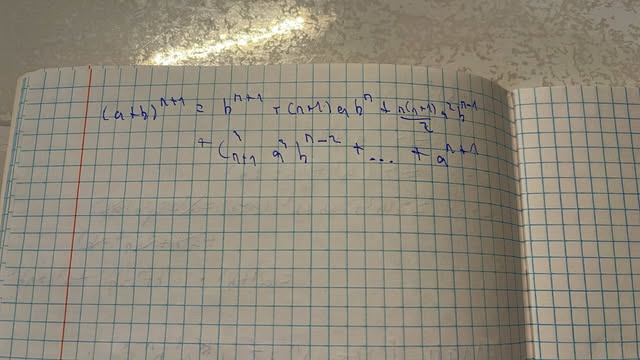 (a+b)^{n+1} = b^{n+1} + (n+1) a b^n + \frac{n(n+1)}{2} a^2 b^{n-1}
+ C_{n+1}^3 a^3 b^{n-2} + ... + a^{n+1}